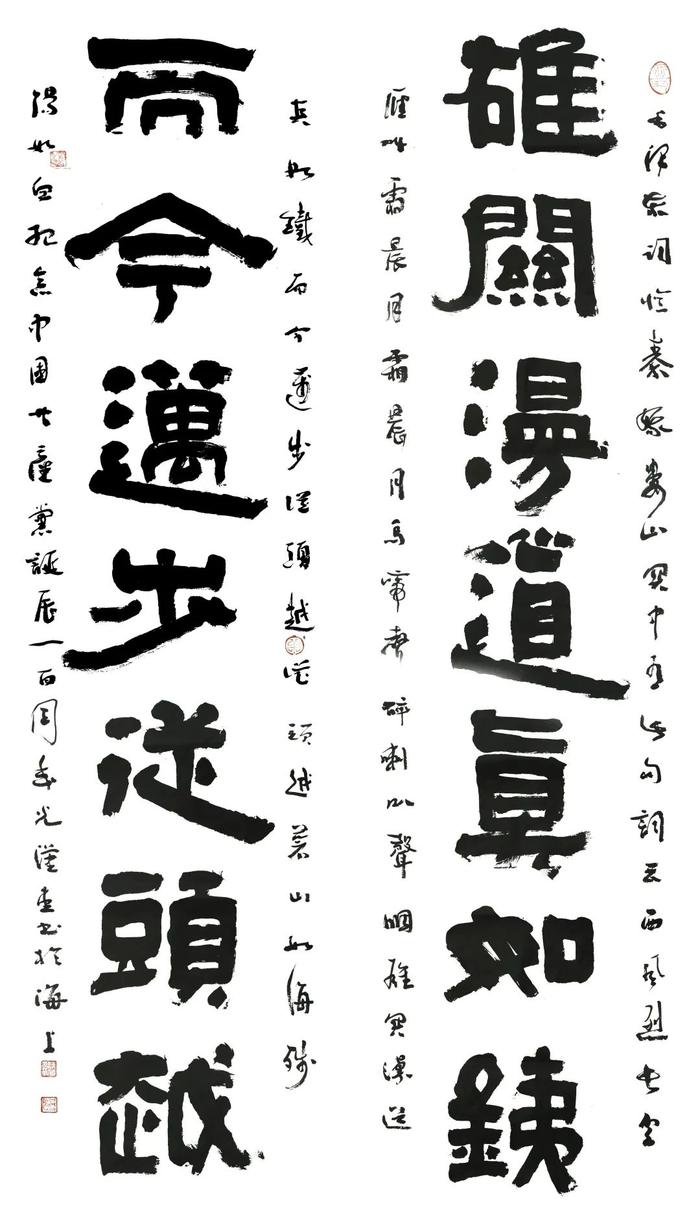 毛澤東詞憶秦娥婁山関中有此句詞云西風烈長空
雄關漫道眞如銕
雁叫霜晨月霜晨月馬啼聲碎喇叭聲咽雄関漫道
真如鐵而今邁步從頭越從頭越蒼山如海殘
而今邁步從頭越
陽如血紀念中國共產黨誕辰一百周年光漢書於海上